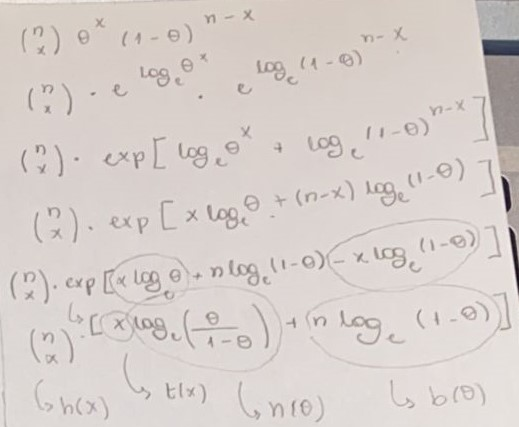 (n x) θ^x (1-θ)^n-x
(n x) · e^log_e θ^x · e^log_e (1-θ)^n-x
(n x) · exp [ log_e θ^x + log_e (1-θ)^n-x ]
(n x) · exp [ x log_e θ + (n-x) log_e (1-θ) ]
(n x) · exp [ x log_e θ + n log_e (1-θ) - x log_e (1-θ) ]
(n x) · [ x log_e (θ/1-θ) + n log_e (1-θ) ]
↳ h(x) ↳ t(x) ↳ n(θ) ↳ b(θ)